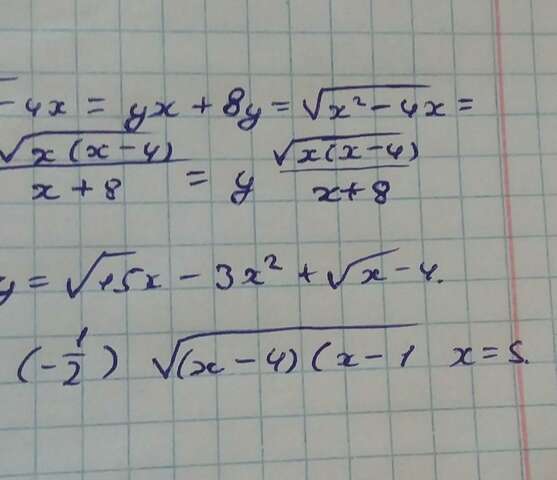 -4x = yx + 8y = √(x² - 4x) =
√(x(x-4))/(x+8) = y √(x(x-4))/(x+8)
y = √15x - 3x² + √x - 4.
(-1/2) √(x-4)(x-1 x = 5.